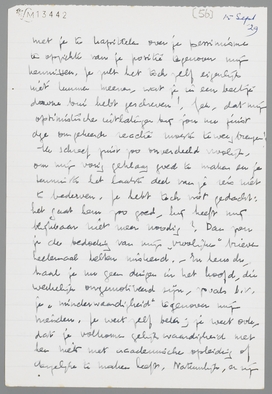 M 13442 (56) 15 Sept 29
met je te kapittelen over je pessimisme
ten opzichte van je positie tegenover mijn
kennissen. Je zult het toch zelf eigenlijk
niet kunnen meenen, want je in een beetje
bui hebt geschreven! , dat mijn
optimistische uitlatingen bij jou nu juist
die omgekeerde reactie moest
Ik schreef juist zoo vroolijk,
om mijn vorig geklaag goed te maken en je
het laatste deel van je reis niet
te bederven. Je hebt toch niet gedacht:
het gaat hem zoo goed, hij heeft mij
niet meer noodig! Dan zou
je de bedoeling van mijn "vroolijke" brieven
heelemaal hebben miskend. En heusch,
haal je nu geen dingen in het hoofd, die
werkelijk ongemotiveerd zijn, zooals b.v.
je "minderwaardigheid" tegenover mijn
vrienden. Je weet zelf
dat je volkomen gelijkwaardig met
hen met academische opleiding of
te maken heeft. Natuurlijk, als mijn